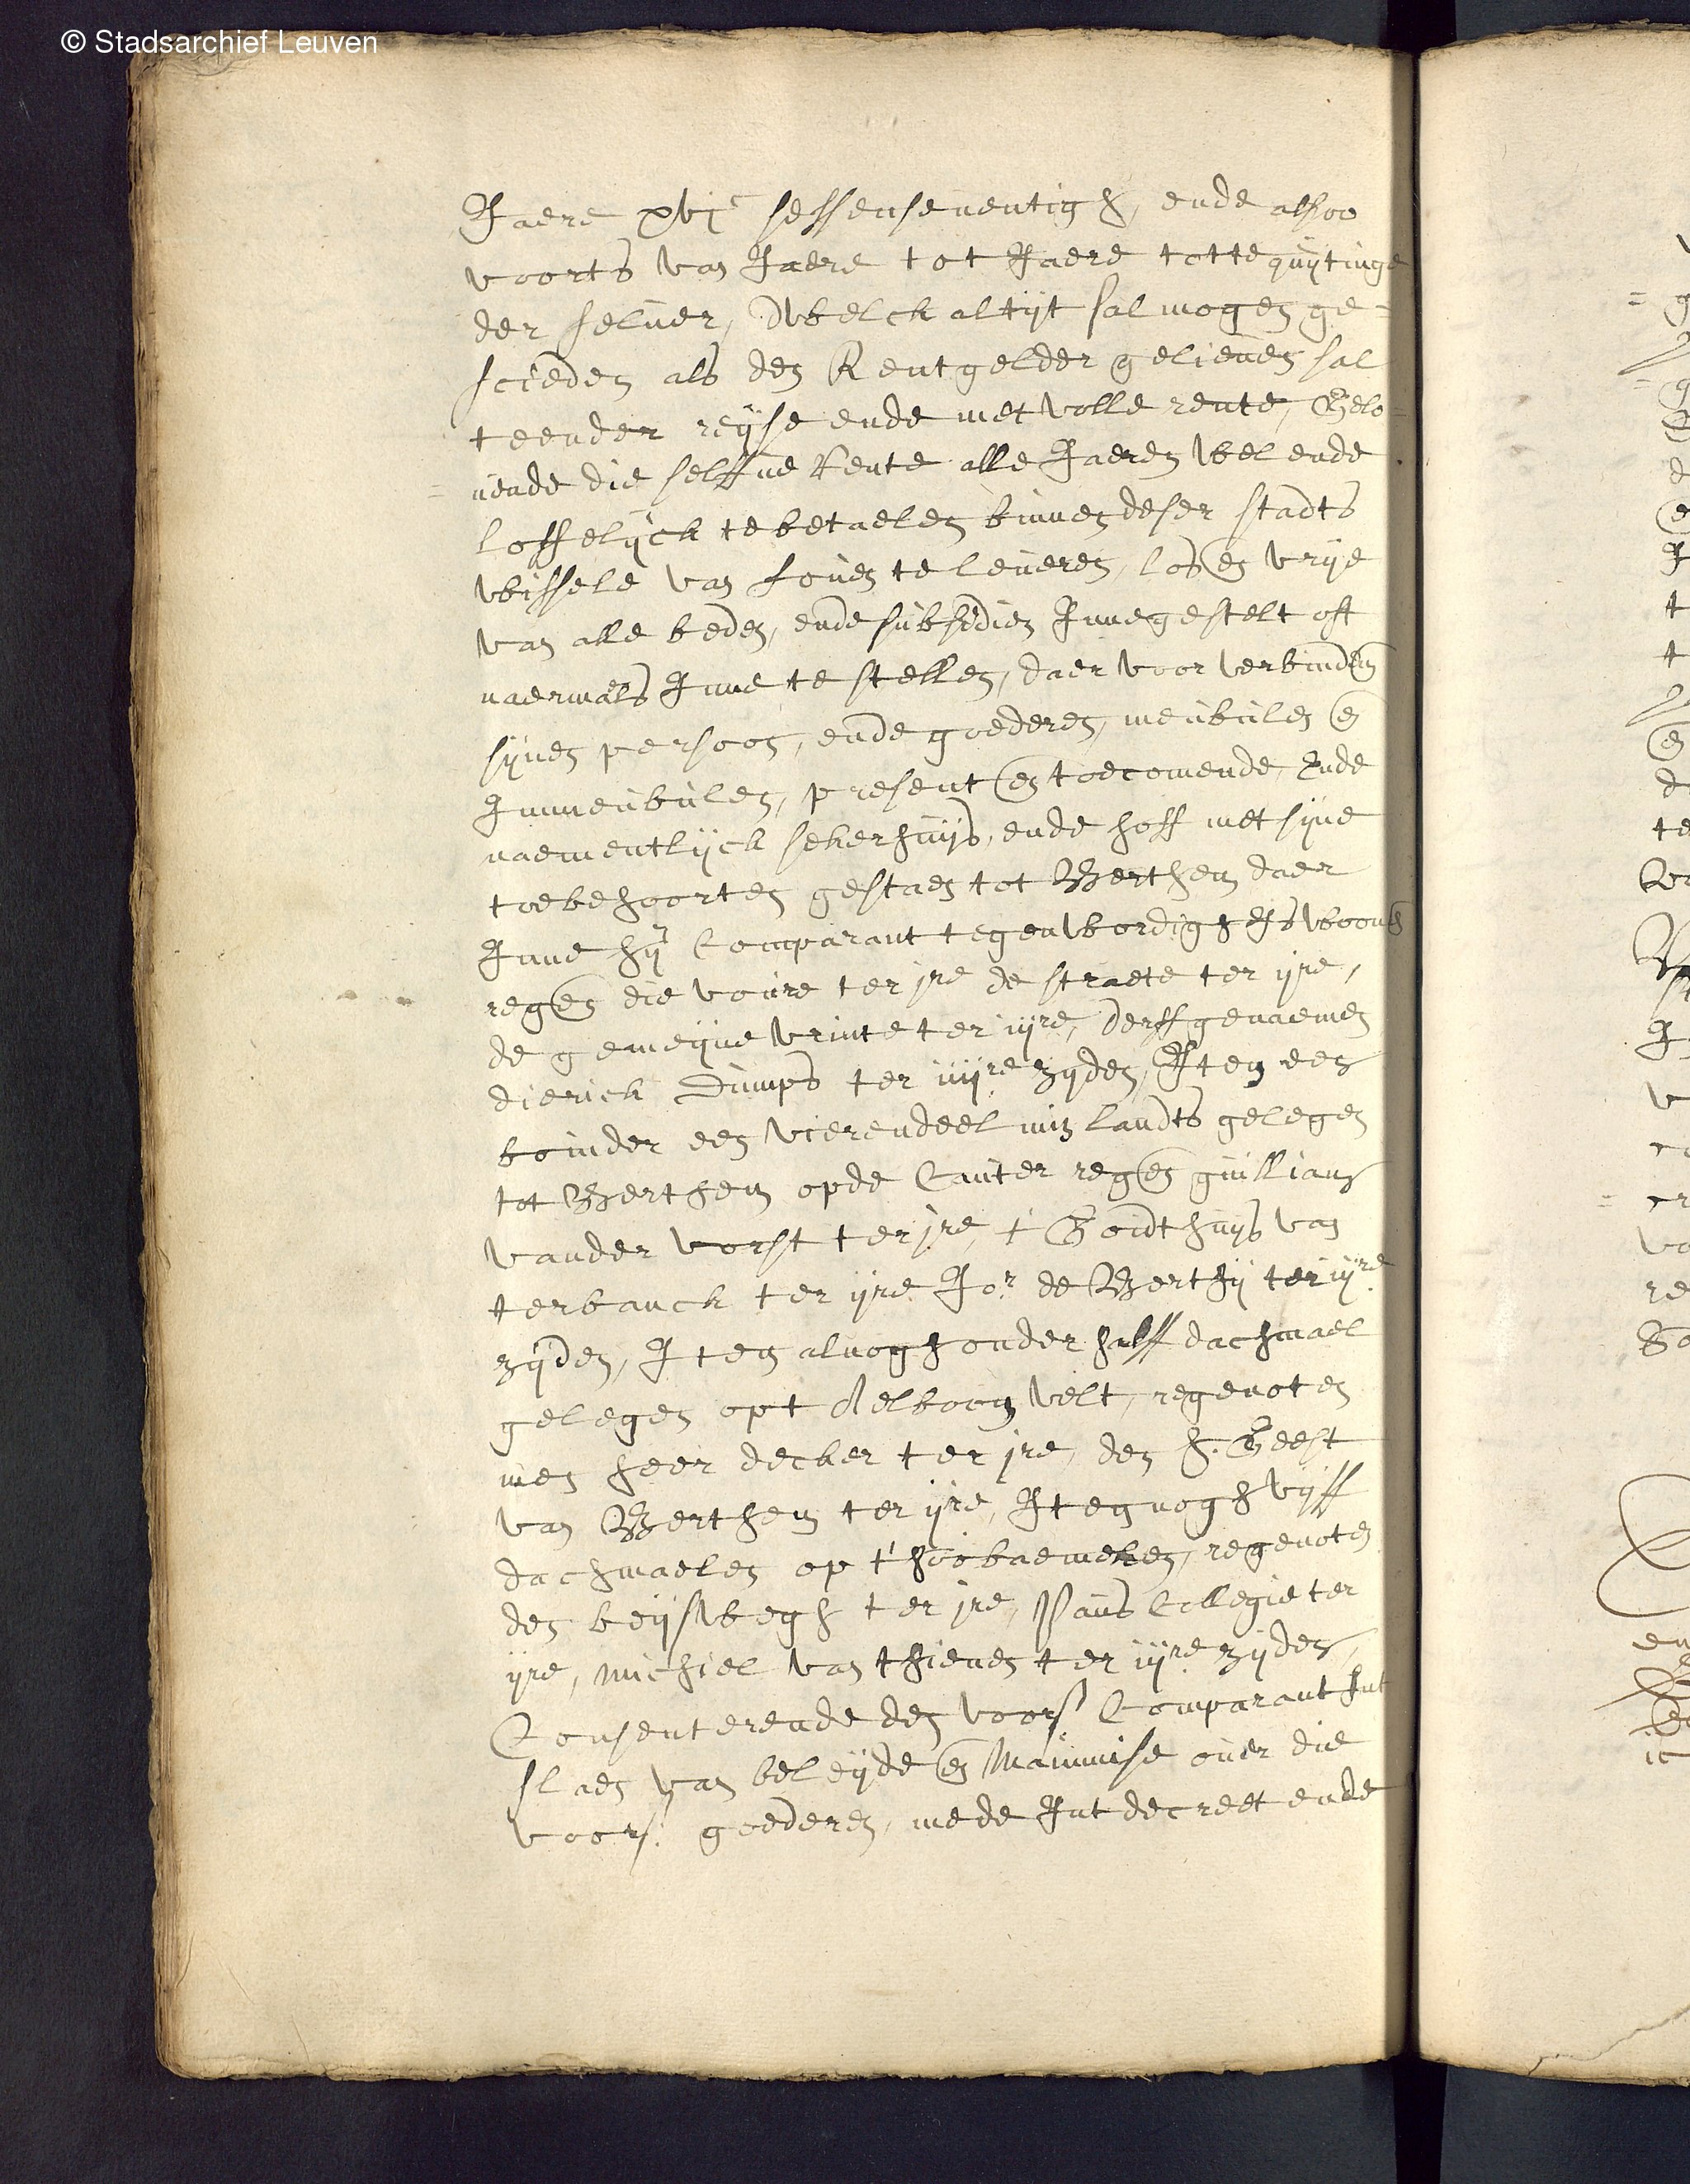 © Stadsarchief Leuven
Jaere xvjc sessenseventigh, ende alsoo
voorts van Jaere tot Jaere totte quytinge
der selver, dwelck altyt sal mogen ge=
scieden als den Rentgelder gelieven sal
teender reyse ende met volle rente, Gelo=
vende die selffve Rente alle Jaeren wel ende
loffelyck te betaelen binnen deser stadts
wissele van Loven te leveren, los en vrye
van alle beden, ende subsidien Innegestelt oft
naermaels Inne te stellen, daer voor verbinden
synen persoon, ende goederen, meubulen en
Immeubulen, present en toecomende, Ende
naementlyck sekerhuys, ende hoff met syne
toebehoorten gestaen tot Berthem daer
Inne hy Comparant tegenwordigh Is woon
regen die voirre ter jre de straete ter ijre,
de gemeyne vrinte ter iijre, derffgenaemen
dierick Dumps ter iiijre zyden, Item een
boinder een vierendeel min landts gelegen
tot Berthem opde Cauter regen guilliam
vander vorst ter jre, t' Godthuys van
terbanck ter ijre Jor de Berthy ter iijre
zyden, Item alnogh onderhalff dachmael
gelegen opt Aelboom velt, regenoten
men heer decker ter jre, den H. Geest
van Berthem ter ijre, Item nogh vyff
dachmaelen op t' regenoten
den beyswegh ter jre, Paus Collegie ter
ijre, Michiel van thienen ter iijre zyden,
Consenterende den voors Comparant Int
slaen van beleyde en Mainmise over die
voors. goederen, mede Int decreet ende